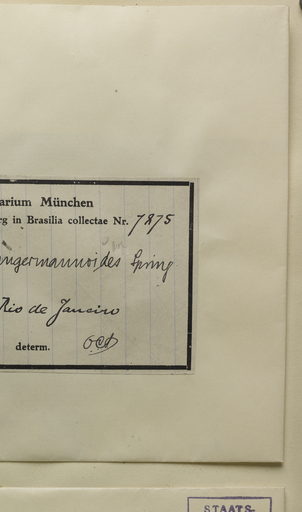 arium München
rg in Brasilia collectae Nr. 7875
ngermannioides Spring
Rio de Janeiro
determ.
STAATS-